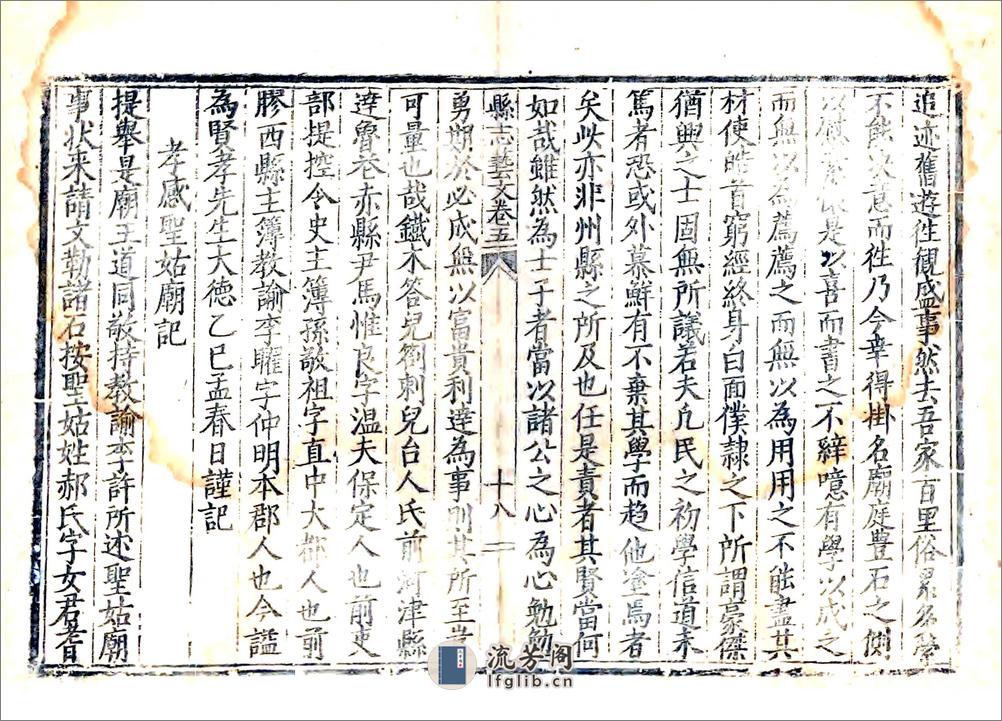 追迹舊遊徃觀盛事然去吾家百里俗累名
不能次意而徃乃今幸得掛名廟庭豊石之側
以慰是以喜而書之不辝噫有學以成之
而無以為薦薦之而無以為用用之不能盡其
材使皓首窮經終身白面僕隷之下所謂豪傑
猶興之士固無所議若夫凢民之初學信道未
篤者恐或外慕鮮有不棄其學而趍他塗焉者
矣此亦非州縣之所及也任是責者其賢當何
如哉雖然為士子者當以諸公之心為心勉勉
縣志藝文卷五 十八
勇期於必成無以富貴利達為事則其所至
可量也哉鐵木答兒劄剌兒台人氏前河津縣
達魯花赤縣尹馬惟良字温夫保定人也前吏
部提控令史主簿孫敬祖字直中大都人也前
膠西縣主簿教諭李矅字仲明本郡人也今謚
為賢孝先生大德乙巳孟春日謹記
孝感聖姑廟記
提舉是廟王道同敬持教諭李許所述聖姑廟
事狀来請文勒諸石按聖姑姓郝氏字女君昔
流芳阁
lfglib.cn